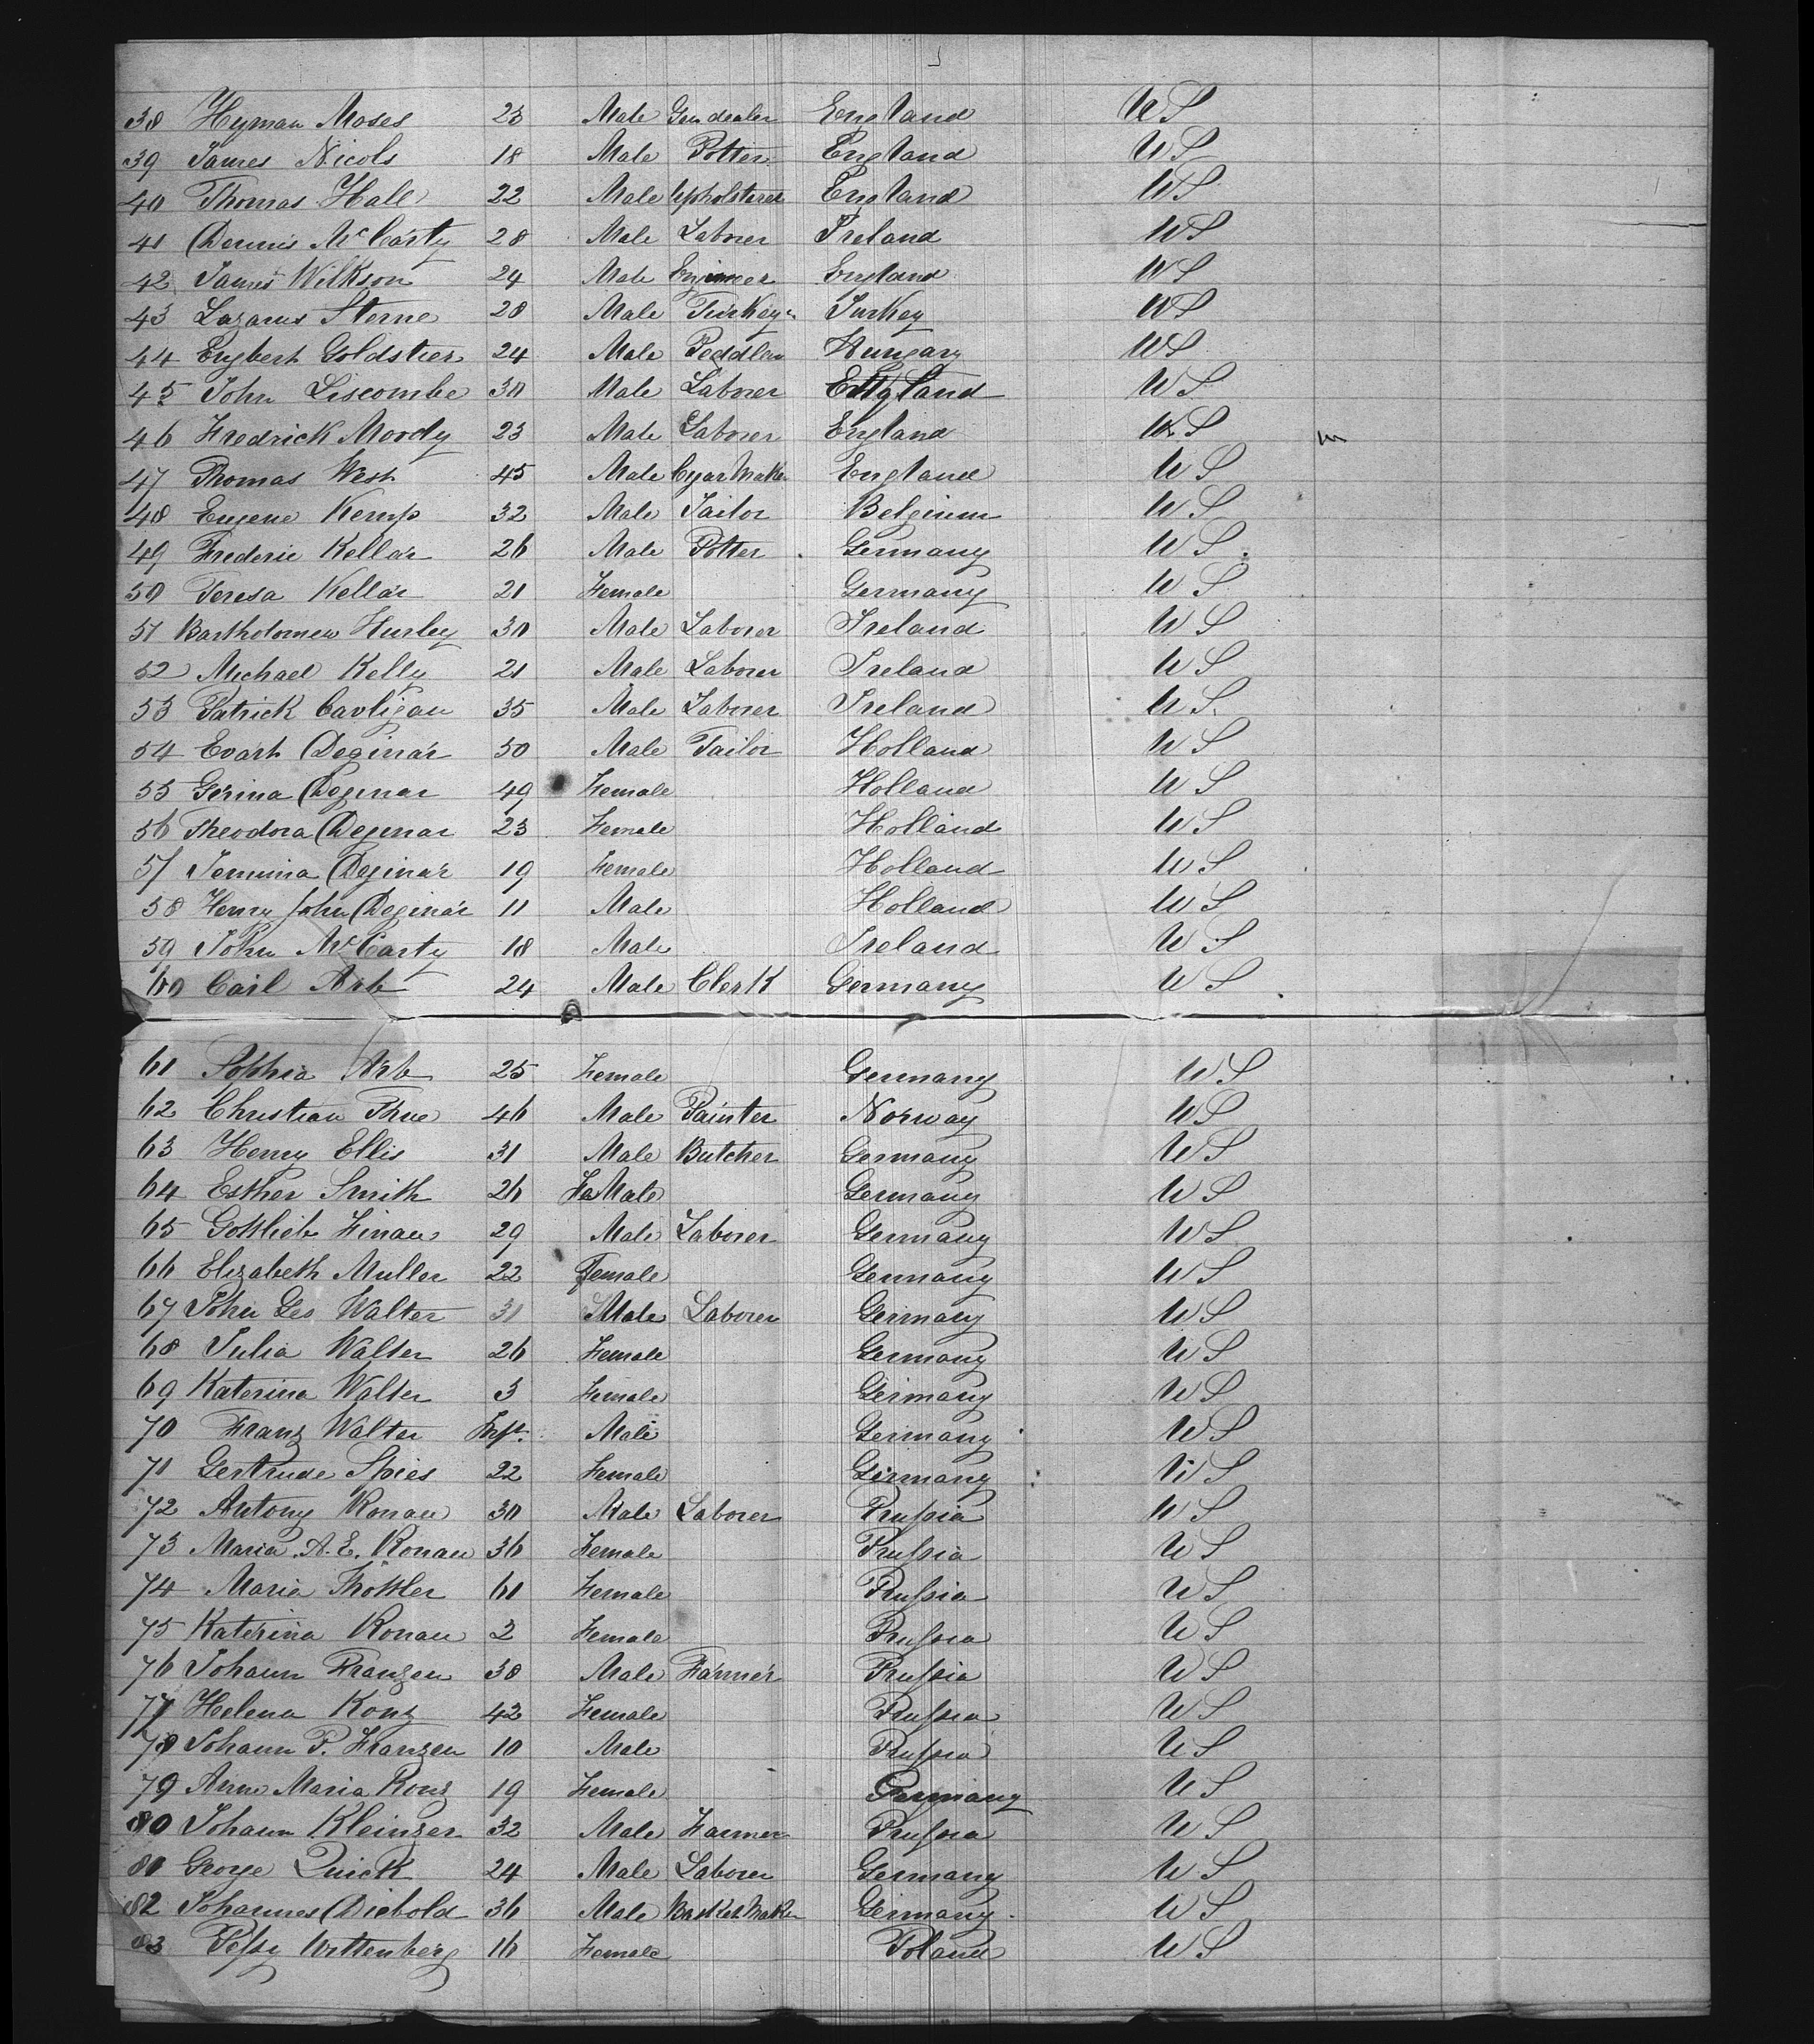 38 Hyman Moses 23 Male Gendealer England U S
39 James Nicols 18 Male Potter England U S
40 Thomas Hall 22 Male Upholsterer England U S
41 Dennis McCarty 28 Male Laborer Ireland U S
42 James Wilkson 24 Male Engineer England U S
43 Lazarus Sterne 28 Male Turkey Turkey U S
44 Engbert 24 Male Peddler Hungary U S
45 John Liscombe 30 Male Laborer England U S
46 Fredrick Moody 23 Male Laborer England U S
47 Thomas West 45 Male Cygar Maker England U S
48 Eugene Kemp 32 Male Tailor Belgium U S
49 Frederic Kellar 26 Male Potter Germany U S
50 Teresa Kellar 21 Female Germany U S
51 Bartholomew Hurley 30 Male Laborer Ireland U S
52 Michael Kelly 21 Male Laborer Ireland U S
53 Patrick 35 Male Laborer Ireland U S
54 Evart Deginar 50 Male Tailor Holland U S
55 Gerina Deginar 49 Female Holland U S
56 Theodora Deginar 23 Female Holland U S
57 Jemima Deginar 19 Female Holland U S
58 Henry John Deginar 11 Male Holland U S
59 John McCarty 18 Male Ireland U S
60 Carl Arb 24 Male Clerk Germany U S
61 Sophia Arb 25 Female Germany U S
62 Christian Thue 46 Male Painter Norway U S
63 Henry Ellis 31 Male Butcher Germany U S
64 Esther Smith 26 FeMale Germany U S
65 Gottlieb Finau 29 Male Laborer Germany U S
66 Elizabeth Muller 22 Female Germany U S
67 John Geo Walter 31 Male Laborer Germany U S
68 Julia Walter 26 Female Germany U S
69 Katerina Walter 3 Female Germany U S
70 Franz Walter Inft. Male Germany U S
71 Gertrude Spies 22 Female Germany U S
72 Antony Konau 30 Male Laborer Prussia U S
73 Maria A. E. Konau 36 Female Prussia U S
74 Maria 61 Female Prussia U S
75 Katerina Konau 2 Female Prussia U S
76 Johann Franzen 38 Male Farmer Prussia U S
77 Helena Konz 42 Female Prussia U S
78 Johann P. Franzen 10 Male Prussia U S
79 Anne Maria Konz 19 Female Germany U S
80 Johann Kleinzer 32 Male Farmer Prussia U S
81 George Quick 24 Male Laborer Germany U S
82 Johannes Diebold 36 Male Basket Maker Germany U S
83 Pessy Wittenberg 16 Female Poland U S